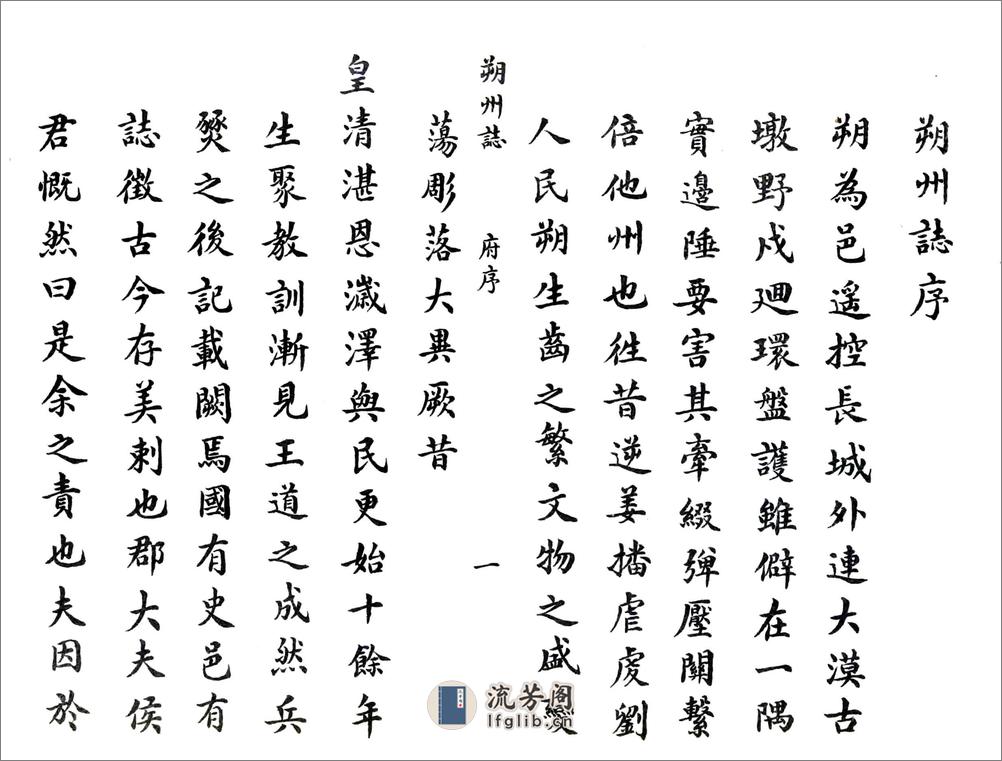 朔州誌序
朔為邑遥控長城外連大漠古
墩野戍廽環盤護雖僻在一隅
實邊陲要害其牽綴彈壓關繫
倍他州也徃昔逆姜播虐虔劉
人民朔生齒之繁文物之盛
朔州誌 府序 一
蕩彫落大異厥昔
皇清湛恩濊澤與民更始十餘年
生聚教訓漸見王道之成然兵
燹之後記載闕焉國有史邑有
誌徵古今存美刺也郡大夫侯
君慨然曰是余之責也夫因於
流芳阁
lfglib.cn